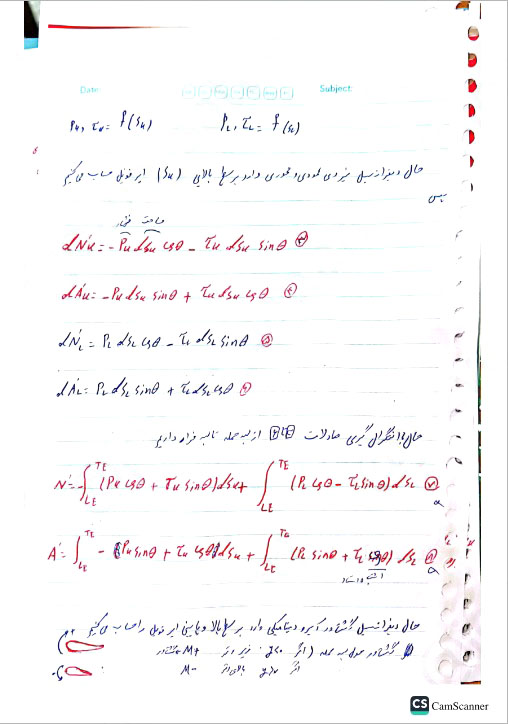 Date:
Subject:
Pu, τu = f(Su)    PL, τL = f(SL)
حال دیفرانسیل نیروی عمودی و محوری وارد بر سطح بالایی (Su) ایرفویل حساب می‌کنیم
پس
مساحت فشار
dN'u = -Pu dSu cosθ - τu dSu sinθ
dA'u = -Pu dSu sinθ + τu dSu cosθ
dN'L = PL dSL cosθ - τL dSL sinθ
dA'L = PL dSL sinθ + τL dSL cosθ
حال با انتگرال گیری معادلات از لبه حمله تا لبه فرار داریم
N' = -∫LE TE (Pu cosθ + τu sinθ) dSu + ∫LE TE (PL cosθ - τL sinθ) dSL
A' = ∫LE TE -(Pu sinθ + τu cosθ) dSu + ∫LE TE (PL sinθ + τL cosθ) dSL
حال دیفرانسیل گشتاور آیرودینامیکی وارد بر سطح بالا و پایین ایرفویل را حساب می‌کنیم
گشتاور حول لبه حمله (اگر y<0 زیر وتر M+
اگر y>0 بالای وتر M-
CS CamScanner